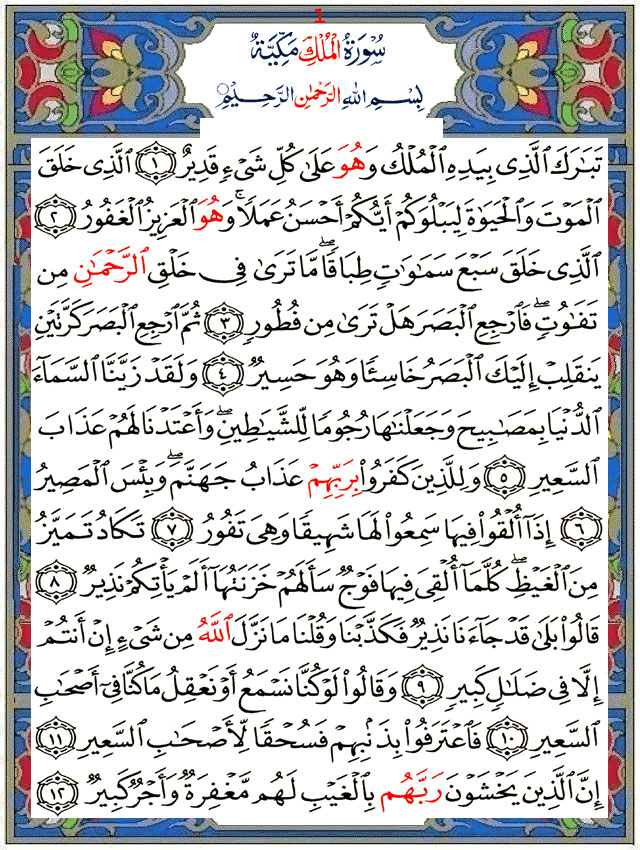 1
سُورَةُ الْمُلْكِ مَكِّيَّةٌ
بِسْمِ اللهِ الرَّحْمٰنِ الرَّحِيْمِ
تَبَٰرَكَ ٱلَّذِى بِيَدِهِ ٱلْمُلْكُ وَهُوَ عَلَىٰ كُلِّ شَىْءٍ قَدِيرٌ ﴿١﴾ ٱلَّذِى خَلَقَ
ٱلْمَوْتَ وَٱلْحَيَوٰةَ لِيَبْلُوَكُمْ أَيُّكُمْ أَحْسَنُ عَمَلًا ۚ وَهُوَ ٱلْعَزِيزُ ٱلْغَفُورُ ﴿٢﴾
ٱلَّذِى خَلَقَ سَبْعَ سَمَٰوَٰتٍ طِبَاقًا ۖ مَّا تَرَىٰ فِى خَلْقِ ٱلرَّحْمَٰنِ مِن
تَفَٰوُتٍ ۖ فَٱرْجِعِ ٱلْبَصَرَ هَلْ تَرَىٰ مِن فُطُورٍ ﴿٣﴾ ثُمَّ ٱرْجِعِ ٱلْبَصَرَ كَرَّتَيْنِ
يَنقَلِبْ إِلَيْكَ ٱلْبَصَرُ خَاسِئًا وَهُوَ حَسِيرٌ ﴿٤﴾ وَلَقَدْ زَيَّنَّا ٱلسَّمَآءَ
ٱلدُّنْيَا بِمَصَٰبِيحَ وَجَعَلْنَٰهَا رُجُومًا لِّلشَّيَٰطِينِ ۖ وَأَعْتَدْنَا لَهُمْ عَذَابَ
ٱلسَّعِيرِ ﴿٥﴾ وَلِلَّذِينَ كَفَرُوا۟ بِرَبِّهِمْ عَذَابُ جَهَنَّمَ ۖ وَبِئْسَ ٱلْمَصِيرُ
﴿٦﴾ إِذَآ أُلْقُوا۟ فِيهَا سَمِعُوا۟ لَهَا شَهِيقًا وَهِىَ تَفُورُ ﴿٧﴾ تَكَادُ تَمَيَّزُ
مِنَ ٱلْغَيْظِ ۖ كُلَّمَآ أُلْقِىَ فِيهَا فَوْجٌ سَأَلَهُمْ خَزَنَتُهَآ أَلَمْ يَأْتِكُمْ نَذِيرٌ ﴿٨﴾
قَالُوا۟ بَلَىٰ قَدْ جَآءَنَا نَذِيرٌ فَكَذَّبْنَا وَقُلْنَا مَا نَزَّلَ ٱللَّهُ مِن شَىْءٍ إِنْ أَنتُمْ
إِلَّا فِى ضَلَٰلٍ كَبِيرٍ ﴿٩﴾ وَقَالُوا۟ لَوْ كُنَّا نَسْمَعُ أَوْ نَعْقِلُ مَا كُنَّا فِىٓ أَصْحَٰبِ
ٱلسَّعِيرِ ﴿١٠﴾ فَٱعْتَرَفُوا۟ بِذَنۢبِهِمْ فَسُحْقًا لِّأَصْحَٰبِ ٱلسَّعِيرِ ﴿١١﴾
إِنَّ ٱلَّذِينَ يَخْشَوْنَ رَبَّهُم بِٱلْغَيْبِ لَهُم مَّغْفِرَةٌ وَأَجْرٌ كَبِيرٌ ﴿١٢﴾